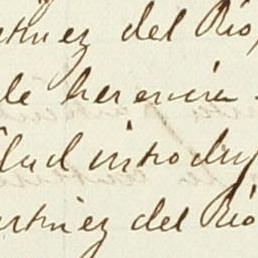 rtinez del Rio,
de herencia
lud introdu
artinez del Rio